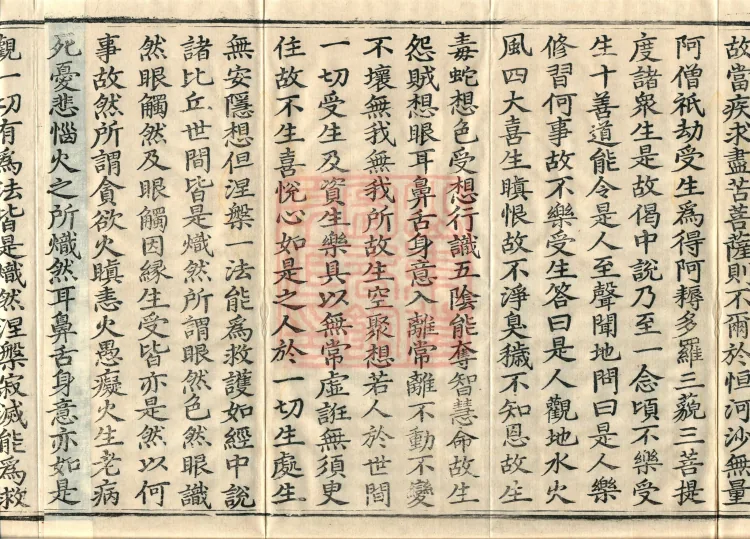 故當疾求盡苦菩薩則不爾於恒河沙無量
阿僧祇劫受生爲得阿耨多羅三藐三菩提
度諸衆生是故偈中說乃至一念頃不樂受
生十善道能令是人至聲聞地問曰是人樂
修習何事故不樂受生答曰是人觀地水火
風四大喜生瞋恨故不淨臭穢不知恩故生
毒蛇想色受想行識五陰能奪智慧命故生
怨賊想眼耳鼻舌身意入離常離不動不變
不壞無我無我所故生空聚想若人於世間
一切受生及資生樂具以無常虛誑無須臾
住故不生喜悅心如是之人於一切生處生
無安隱想但涅槃一法能爲救護如經中說
諸比丘世間皆是熾然所謂眼然色然眼識
然眼觸然及眼觸因緣生受皆亦是然以何
事故然所謂貪欲火瞋恚火愚癡火生老病
死憂悲惱火之所熾然耳鼻舌身意亦如是
觀一切有爲法皆是熾然涅槃寂滅能爲救